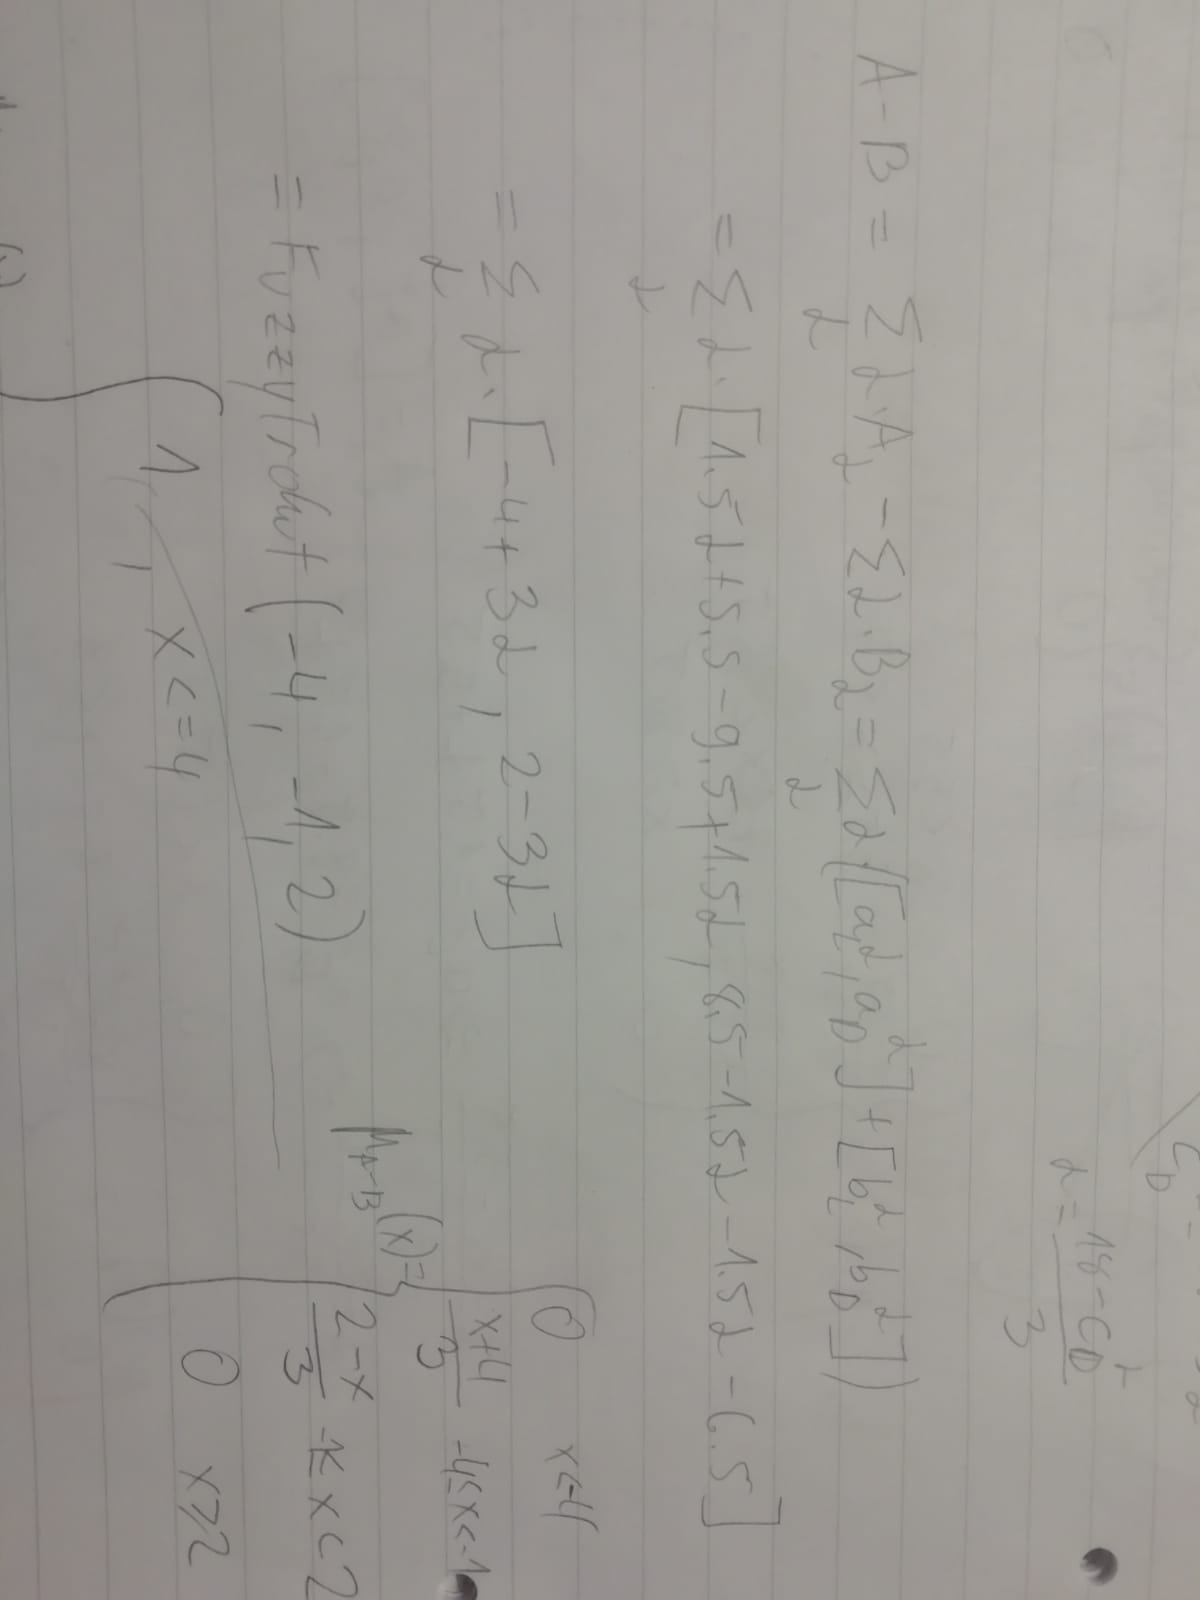 α = 18-c_D^α / 3
A-B = Σ_α α A_α - Σ α·B_α = Σ_α α([a_L^α, a_D^α] + [b_L^α, b_D^α])
= Σ_α α·[1.5α+5.5-9.5+1.5α, 8.5-1.5α-1.5α-6.5]
= Σ_α α·[-4+3α, 2-3α]
= FuzzyTrokut(-4, -1, 2)
μ_A-B(x) = { 0 x<-4
x+4 / 3 -4≤x<-1
2-x / 3 -1≤x<2
0 x≥2
{ 1, , x<=4